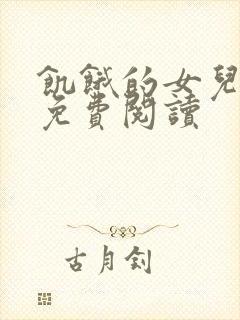 飢餓的女兒
免費閱讀
古月釗